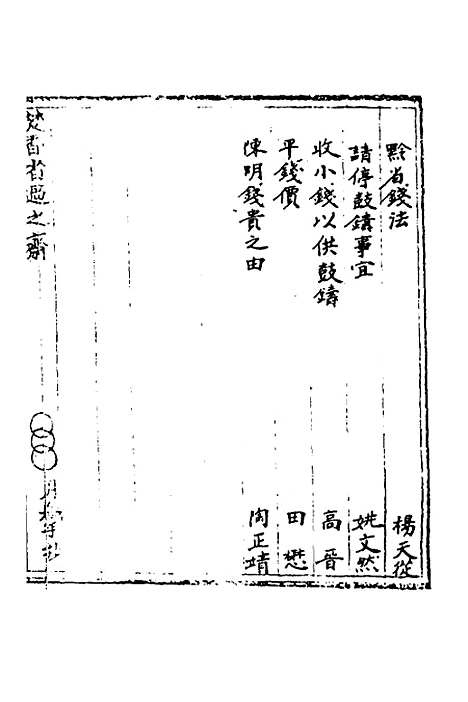 黔省錢法 楊天從
請停鼓鑄事宜 姚文然
收小錢以供鼓鑄 高晉
平錢價 田懋
陳明錢貴之由 陶正靖
焚香省過之齋